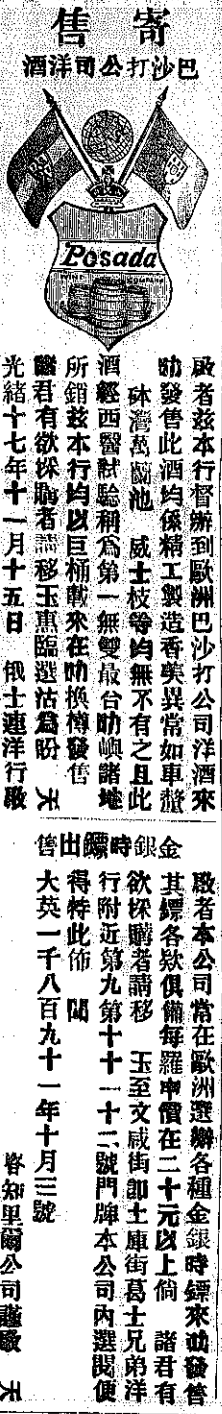 寄售
巴沙打公司洋酒
Posada
啟者茲本行督辦到歐洲巴沙打公司洋酒來
叻發售此酒均係精工製造香美異常如車厘
砵灣萬蘭池 威士枝等均無不有之且此
酒經西醫試驗稱為第一無雙最合叻嶼諸地
所銷茲本行均以巨桶載來在叻換樽發售
諸君有欲採購者請移玉惠臨選沽為盼 天
光緒十七年十一月十五日 俄士連洋行啟
金銀時鏢出售
啟者本公司常在歐洲選辦各種金銀時鏢來叻發售
其鏢各欵俱備每羅申價在二十元以上倘 諸君有
欲採購者請移 玉至文咸街即土庫街葛士兄弟洋
行附近第九第十十一十二號門牌本公司內選閱便
得特此佈 聞
大英一千八百九十一年十月三號
喀知里爾公司謹啟 天